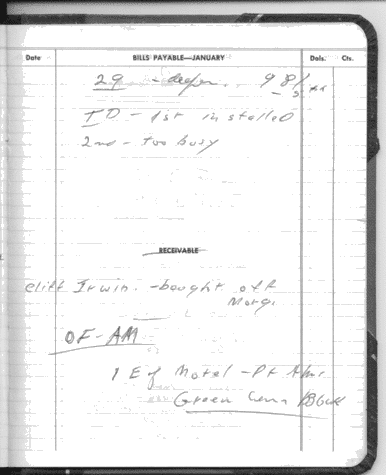 Date BILLS PAYABLE—JANUARY Dols. Cts.
29 - deeper. 98
TD - 1st installed
2nd - too busy
RECEIVABLE
Cliff Irwin. - bought off
Morg.
OF-AM
1 E of Motel - Pt
Green